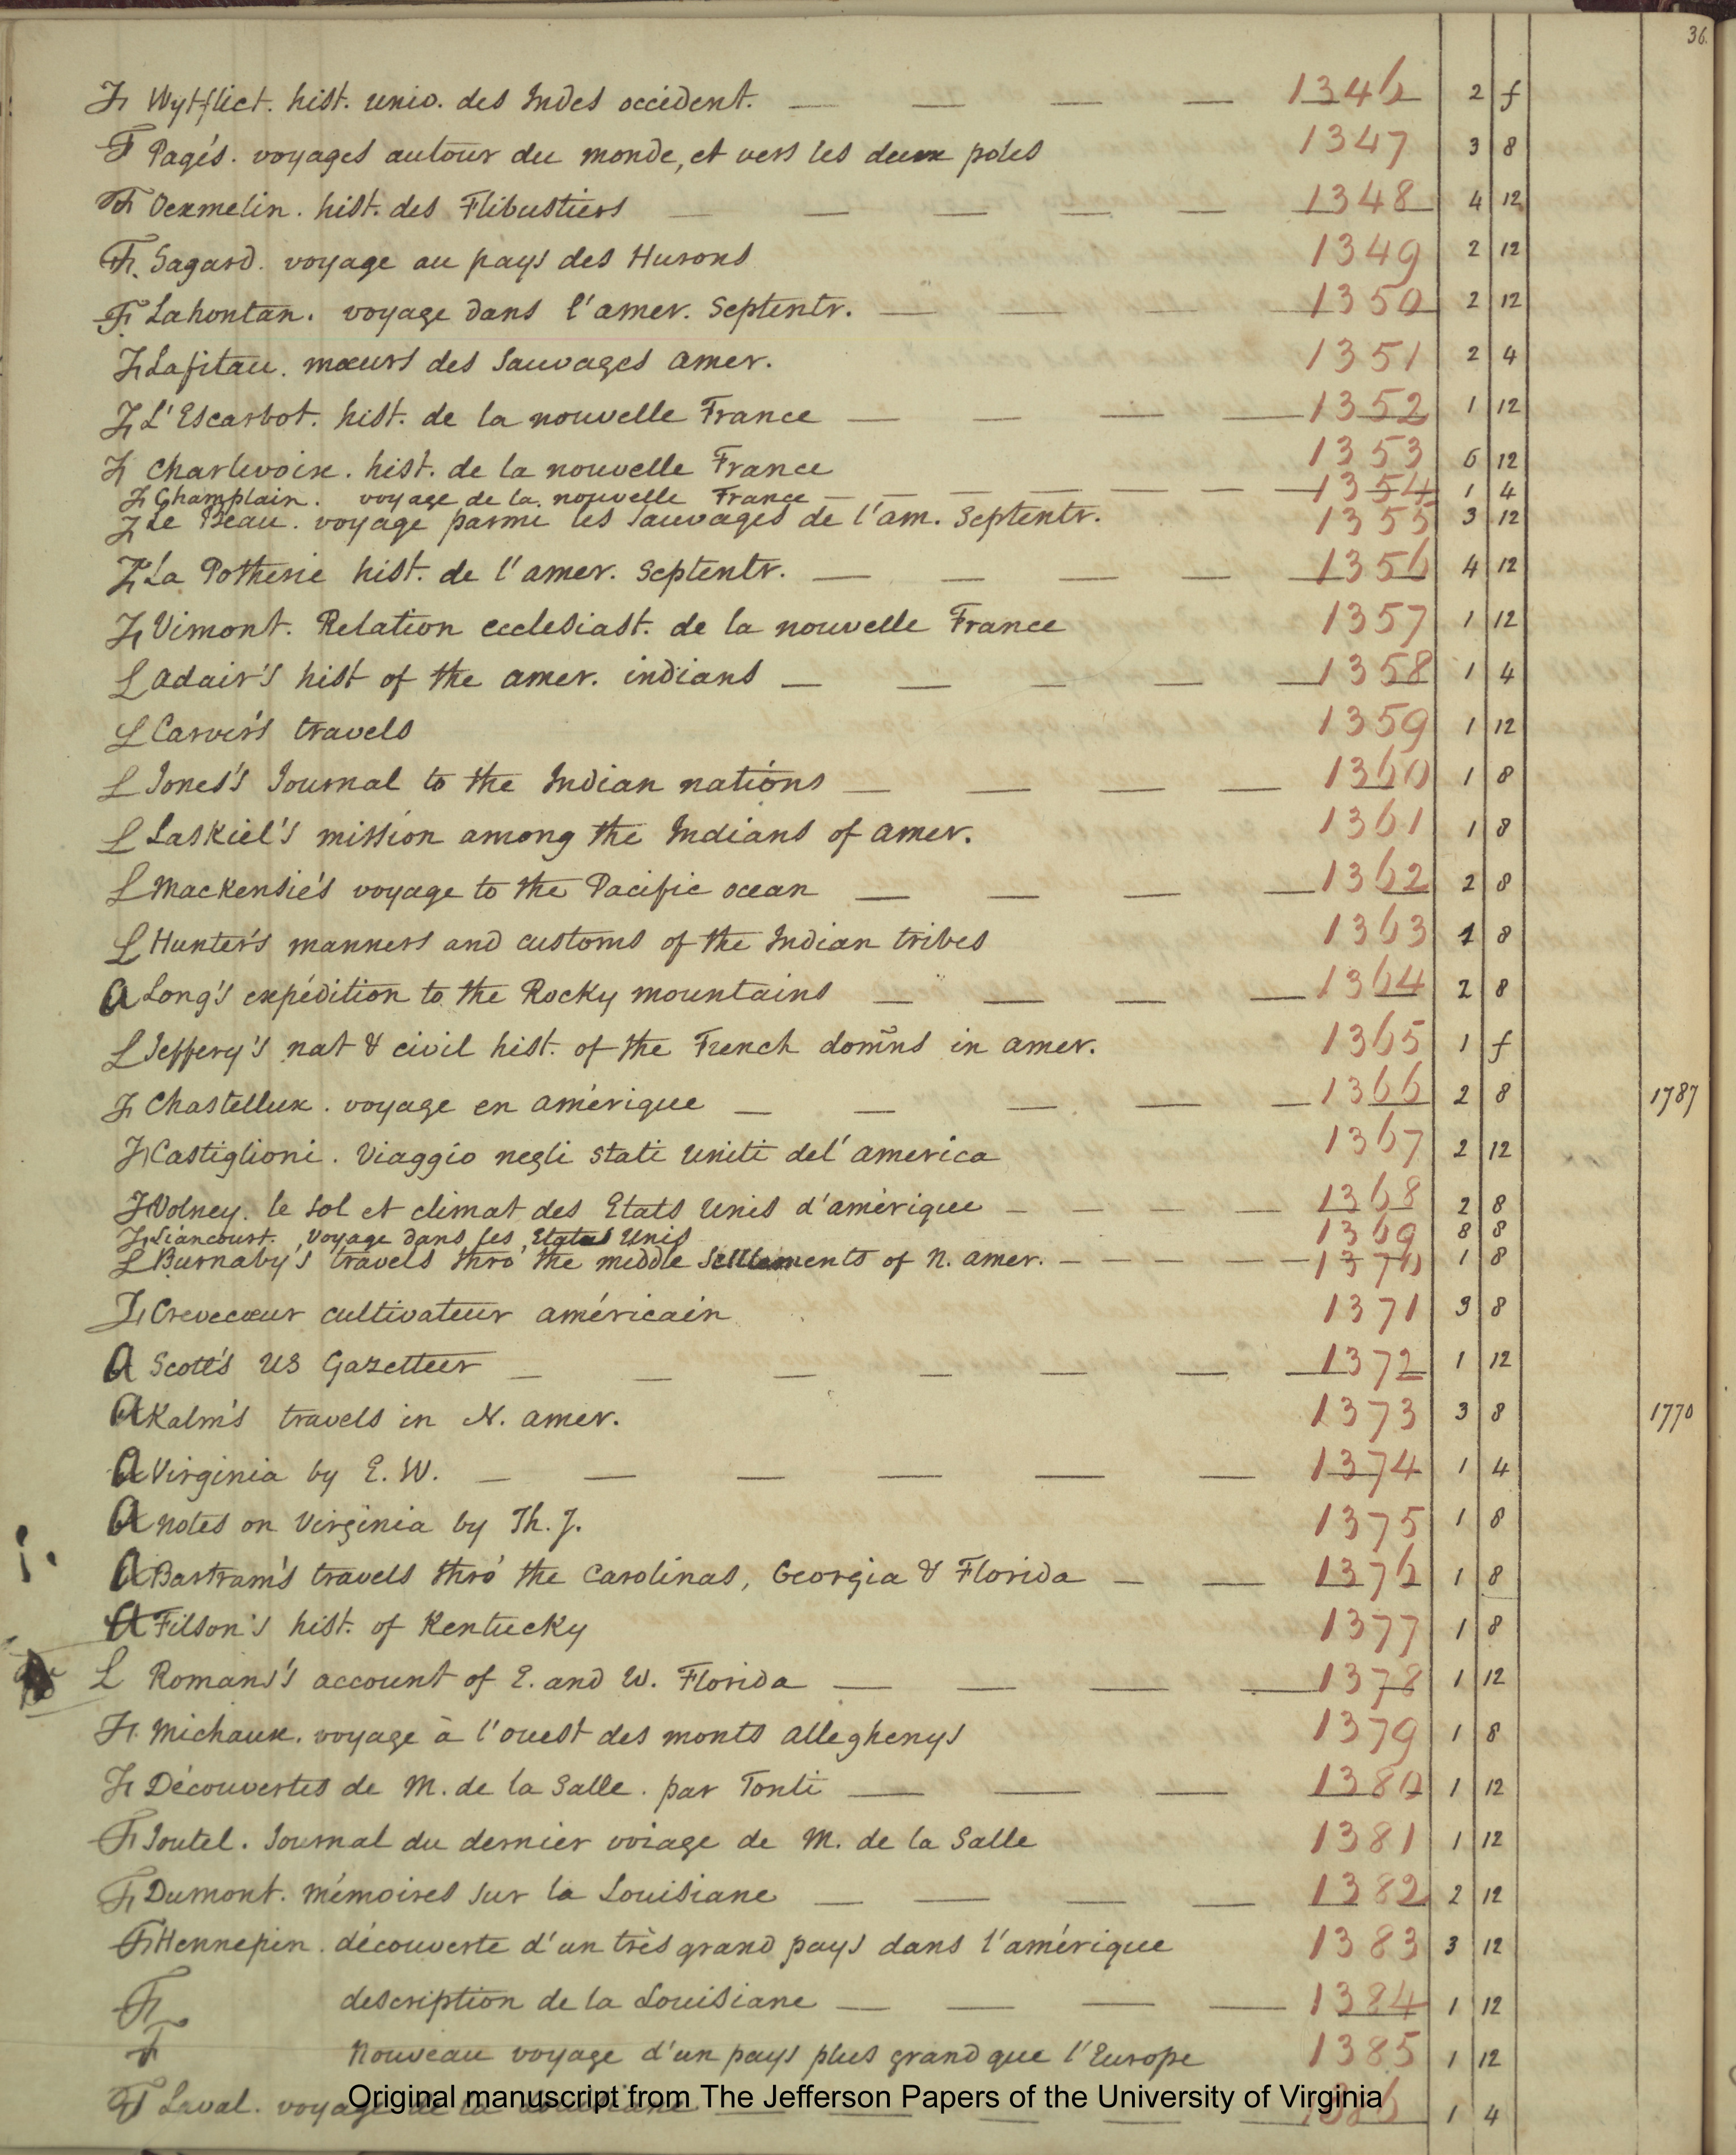 36.
F Wytfliet. hist. univ. des Indes occident. 1346 2 f
F Pagés. voyages autour du monde, et vers les deux poles 1347 3 8
F Oexmelin. hist. des Flibustiers 1348 4 12
F. Sagard. voyage au pays des Hurons 1349 2 12
F Lahontan. voyage dans l'amer. Septentr. 1350 2 12
F Lafitau. mœurs des Sauvages amer. 1351 2 4
F L'Escarbot. hist. de la nouvelle France 1352 1 12
F Charlevoix. hist. de la nouvelle France 1353 6 12
F Champlain. voyage de la nouvelle France 1354 1 4
F Le Beau. voyage parmi les Sauvages de l'am. Septentr. 1355 3 12
F La Potherie hist. de l'amer. Septentr. 1356 4 12
F Vimont. Relation ecclesiast. de la nouvelle France 1357 1 12
L Adair's hist of the amer. indians 1358 1 4
L Carver's travels 1359 1 12
L Jones's Journal to the Indian nations 1360 1 8
L Laskiel's mission among the Indians of amer. 1361 1 8
L Mackensie's voyage to the Pacific ocean 1362 2 8
L Hunter's manners and customs of the Indian tribes 1363 1 8
A Long's expédition to the Rocky mountains 1364 2 8
L Jeffery's nat & civil hist. of the French domñs in amer. 1365 1 f
F Chastellux. voyage en amérique 1366 2 8 1787
F Castiglioni. Viaggio negli stati uniti del' america 1367 2 12
F Volney. le sol et climat des Etats Unis d'amérique 1368 2 8
F Liancourt. Voyage dans les Etats Unis 1369 8 8
L Burnaby's travels thro' the middle settlements of N. amer. 1370 1 8
F Crevecœur cultivateur américain 1371 3 8
A Scott's US Gazetteer 1372 1 12
A Kalm's travels in N. amer. 1373 3 8 1770
A Virginia by E. W. 1374 1 4
A Notes on Virginia by Th. J. 1375 1 8
A Bartram's travels thro' the Carolinas, Georgia & Florida 1376 1 8
A Filson's hist. of Kentucky 1377 1 8
L Romans's account of E. and W. Florida 1378 1 12
F. Michaux. voyage à l'ouest des monts alleghenys 1379 1 8
F Découvertes de M. de la Salle. par Tonti 1380 1 12
F Joutel. Journal du dernier voiage de M. de la Salle 1381 1 12
F Dumont. Mémoires sur la Louisiane 1382 2 12
F Hennepin. découverte d'un très grand pays dans l'amérique 1383 3 12
F description de la Louisiane 1384 1 12
F Nouveau voyage d'un pays plus grand que l'Europe 1385 1 12
F Laval. voyage de la Louisiane 1386 1 4
Original manuscript from The Jefferson Papers of the University of Virginia